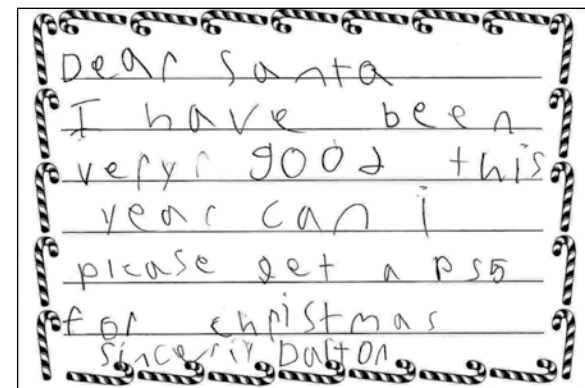 Dear Santa
I have been
veryr good this
year can i
please get a PS5
for christmas
sincerily Dalton